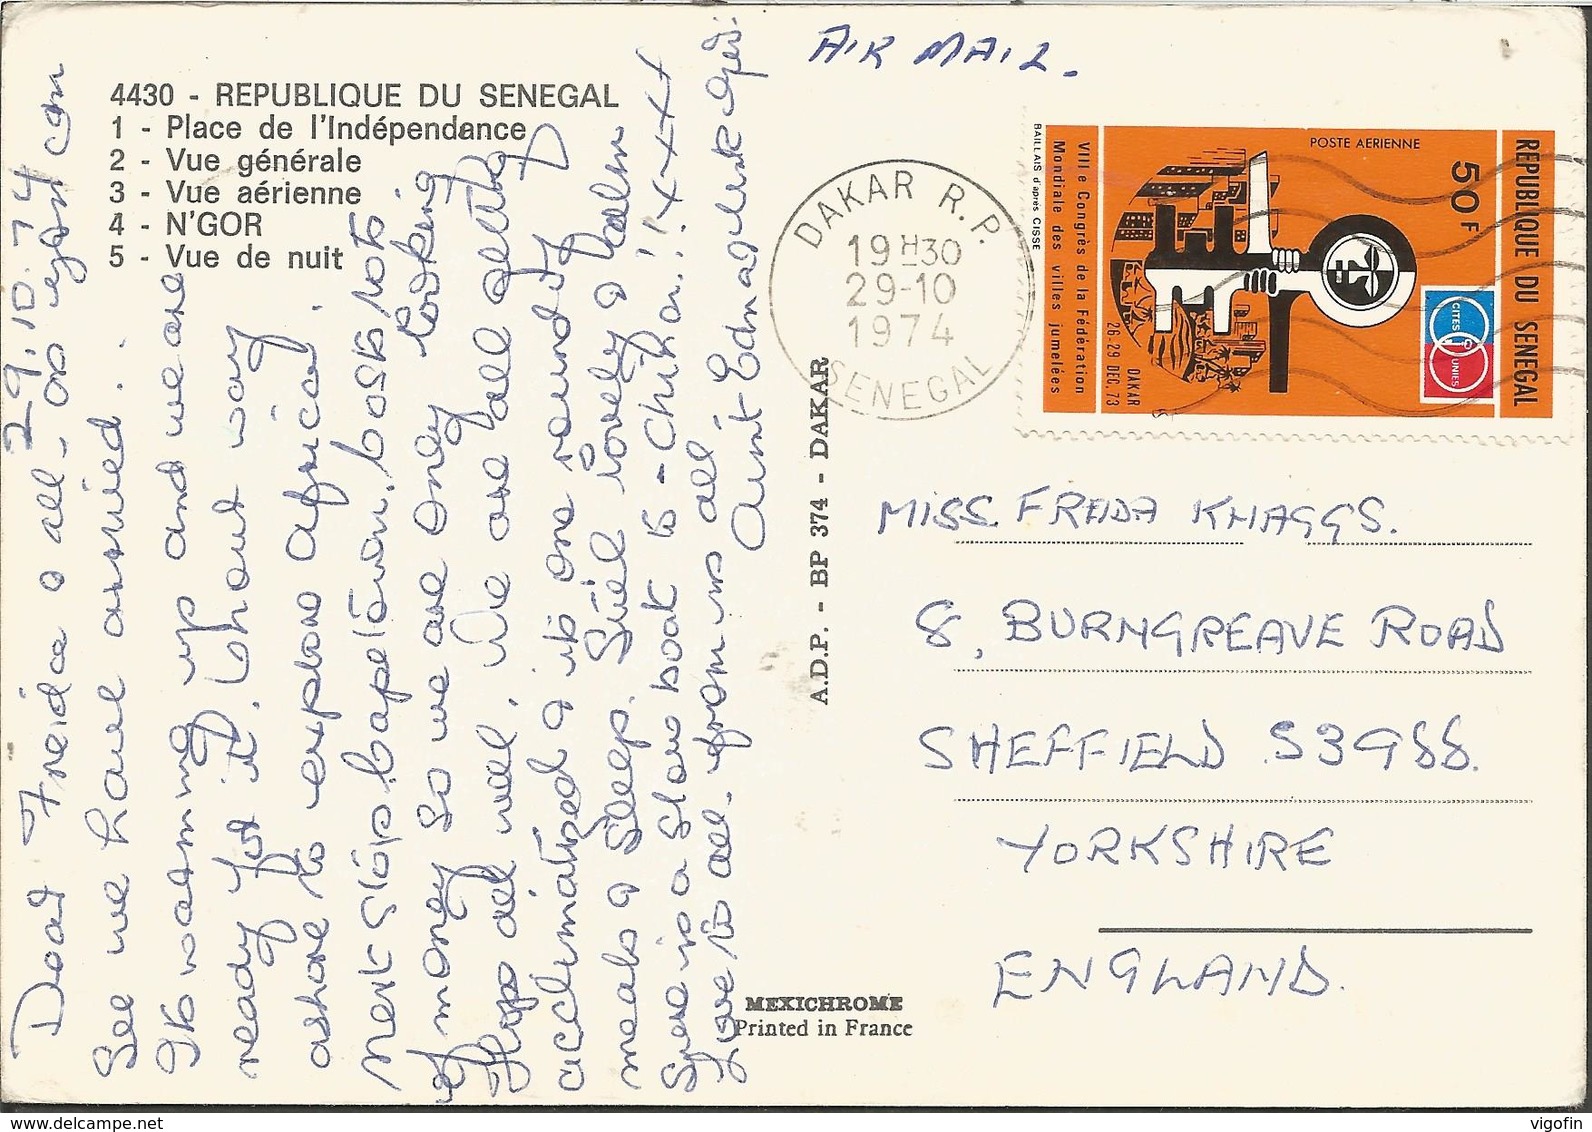 AIR MAIL.
4430 - REPUBLIQUE DU SENEGAL
1 - Place de l'Indépendance
2 - Vue générale
3 - Vue aérienne
4 - N'GOR
5 - Vue de nuit
29.10.74
Dear Freida & all. as you can
see we have arrived.
Its warming up and we are
ready for it. Whant way
ashore to explore Africa.
Next stop Capetown. costs lots
of money so we are only looking
Hope all well. We are all getting
acclimatized & it is one round of
meals & sleep. Still lovely & calm
Sure is a slow boat to - China!! xxxx
Love to all. from us all
Aunt Edna
A.D.P. - BP 374 - DAKAR
MEXICHROME
Printed in France
DAKAR R.P.
19H30
29-10
1974
SENEGAL
REPUBLIQUE DU SENEGAL
50F
POSTE AERIENNE
CITES UNIES
VIIIe Congrès de la Fédération
Mondiale des villes jumelées
DAKAR
26-29 DEC. 73
BAILLAIS d'après CISSE
MISS. FREIDA KNAGGS.
8, BURNGREAVE ROAD
SHEFFIELD S39SS.
YORKSHIRE
ENGLAND.
www.delcampe.net
vigofin